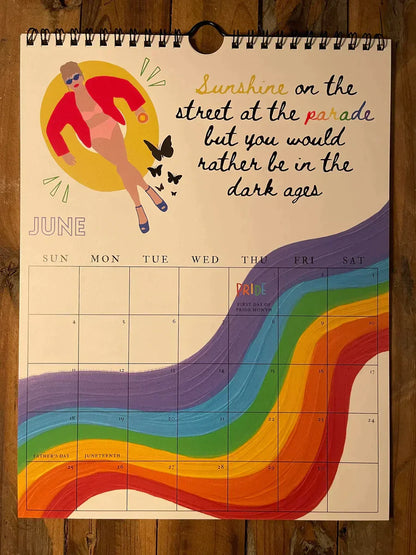 Sunshine on the
street at the parade
but you would
rather be in the
dark ages
JUNE
SUN MON TUE WED THU FRI SAT
PRIDE
FIRST DAY OF
PRIDE MONTH
4 5 6 7
11
18 19 20 21 22 23 24
FATHER'S DAY JUNETEENTH
25 26